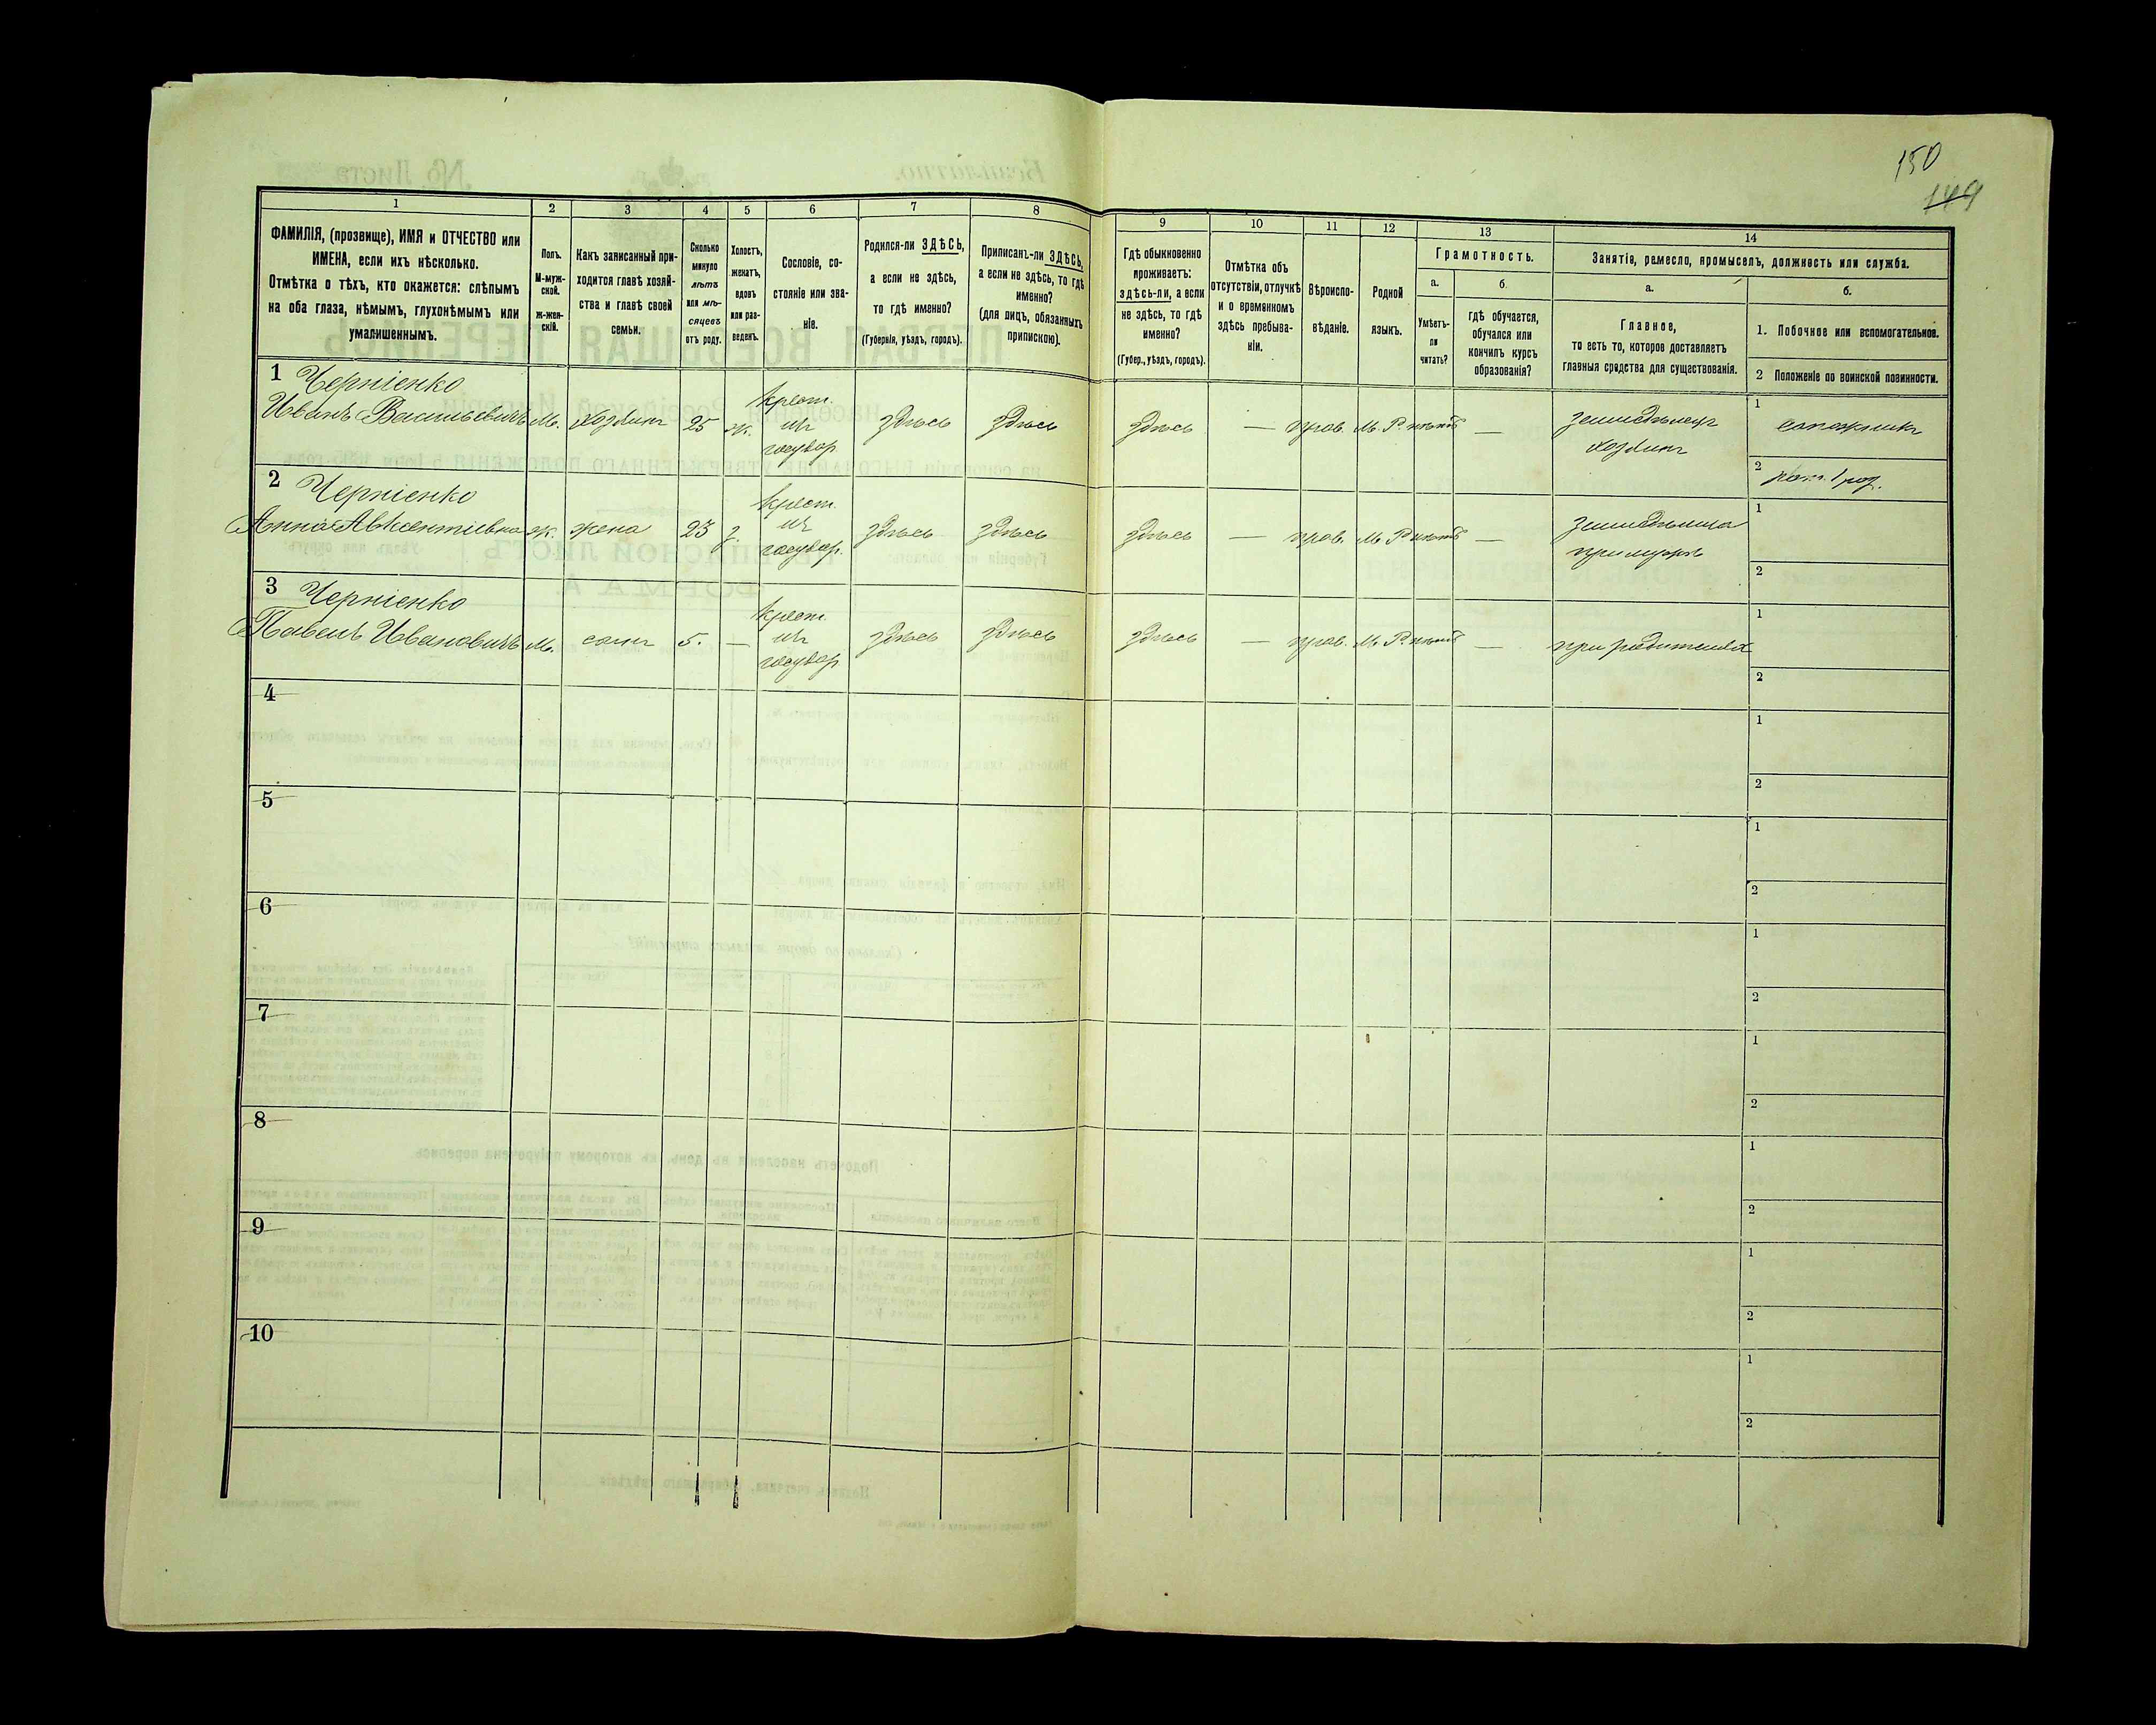 150
149
1
2
3
4
5
6
7
8
9
10
11
12
13
14
ФАМИЛІЯ, (прозвище), ИМЯ и ОТЧЕСТВО или
ИМЕНА, если ихъ нѣсколько.
Отмѣтка о тѣхъ, кто окажется: слѣпымъ
на оба глаза, нѣмымъ, глухонѣмымъ или
умалишеннымъ.
Полъ.
М-муж-
ской.
Ж-жен-
скій.
Какъ записанный при-
ходится главѣ хозяй-
ства и главѣ своей
семьи.
Сколько
минуло
лѣтъ
или мѣ-
сяцевъ
отъ роду.
Холостъ,
женатъ,
вдовъ
или раз-
веденъ.
Сословіе, со-
стояніе или зва-
ніе.
Родился-ли ЗДѢСЬ,
а если не здѣсь,
то гдѣ именно?
(Губернія, уѣздъ, городъ).
Приписанъ-ли ЗДѢСЬ,
а если не здѣсь, то гдѣ
именно?
(для лицъ, обязанныхъ
припискою).
Гдѣ обыкновенно
проживаетъ:
здѣсь-ли, а если
не здѣсь, то гдѣ
именно?
(Губер., уѣздъ, городъ).
Отмѣтка объ
отсутствіи, отлучкѣ
и о временномъ
здѣсь пребыва-
ніи.
Вѣроиспо-
вѣданіе.
Родной
языкъ.
Грамотность.
а.
Умѣетъ-
ли
читать?
б.
гдѣ обучается,
обучался или
кончилъ курсъ
образованія?
Занятіе, ремесло, промыселъ, должность или служба.
а.
Главное,
то есть то, которое доставляетъ
главныя средства для существованія.
б.
1. Побочное или вспомогательное.
2 Положеніе по воинской повинности.
1 Черніенко
Иванъ Васильевичъ М. хозяинъ 25 ж. крест. изъ государ. здѣсь здѣсь здѣсь — прав. М. Р. нѣтъ — земледѣлецъ хозяинъ
1 сапожникъ
2 рат. 1 раз.
2 Черніенко
Анна Авксентіевна ж. жена 23 з. крест. изъ государ. здѣсь здѣсь здѣсь — прав. М. Р. нѣтъ — земледѣлица при мужѣ
1
2
3 Черніенко
Павелъ Ивановичъ М. сынъ 5. — крест. изъ государ. здѣсь здѣсь здѣсь — прав. М. Р. нѣтъ — при родителяхъ
1
2
4
1
2
5
1
2
6
1
2
7
1
2
8
1
2
9
1
2
10
1
2